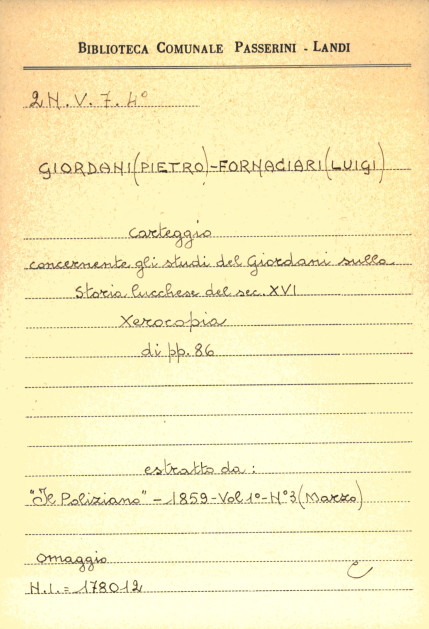 BIBLIOTECA COMUNALE PASSERINI - LANDI
2 N.V.7.4°
GIORDANI (PIETRO) - FORNACIARI (LUIGI)
Carteggio
concernente gli studi del Giordani sulla
Storia lucchese del sec. XVI
Xerocopia
di pp. 86
estratto da:
"Il Poliziano" - 1859 - Vol 1° - N° 3 (Marzo)
omaggio
C
N.I. = 178012